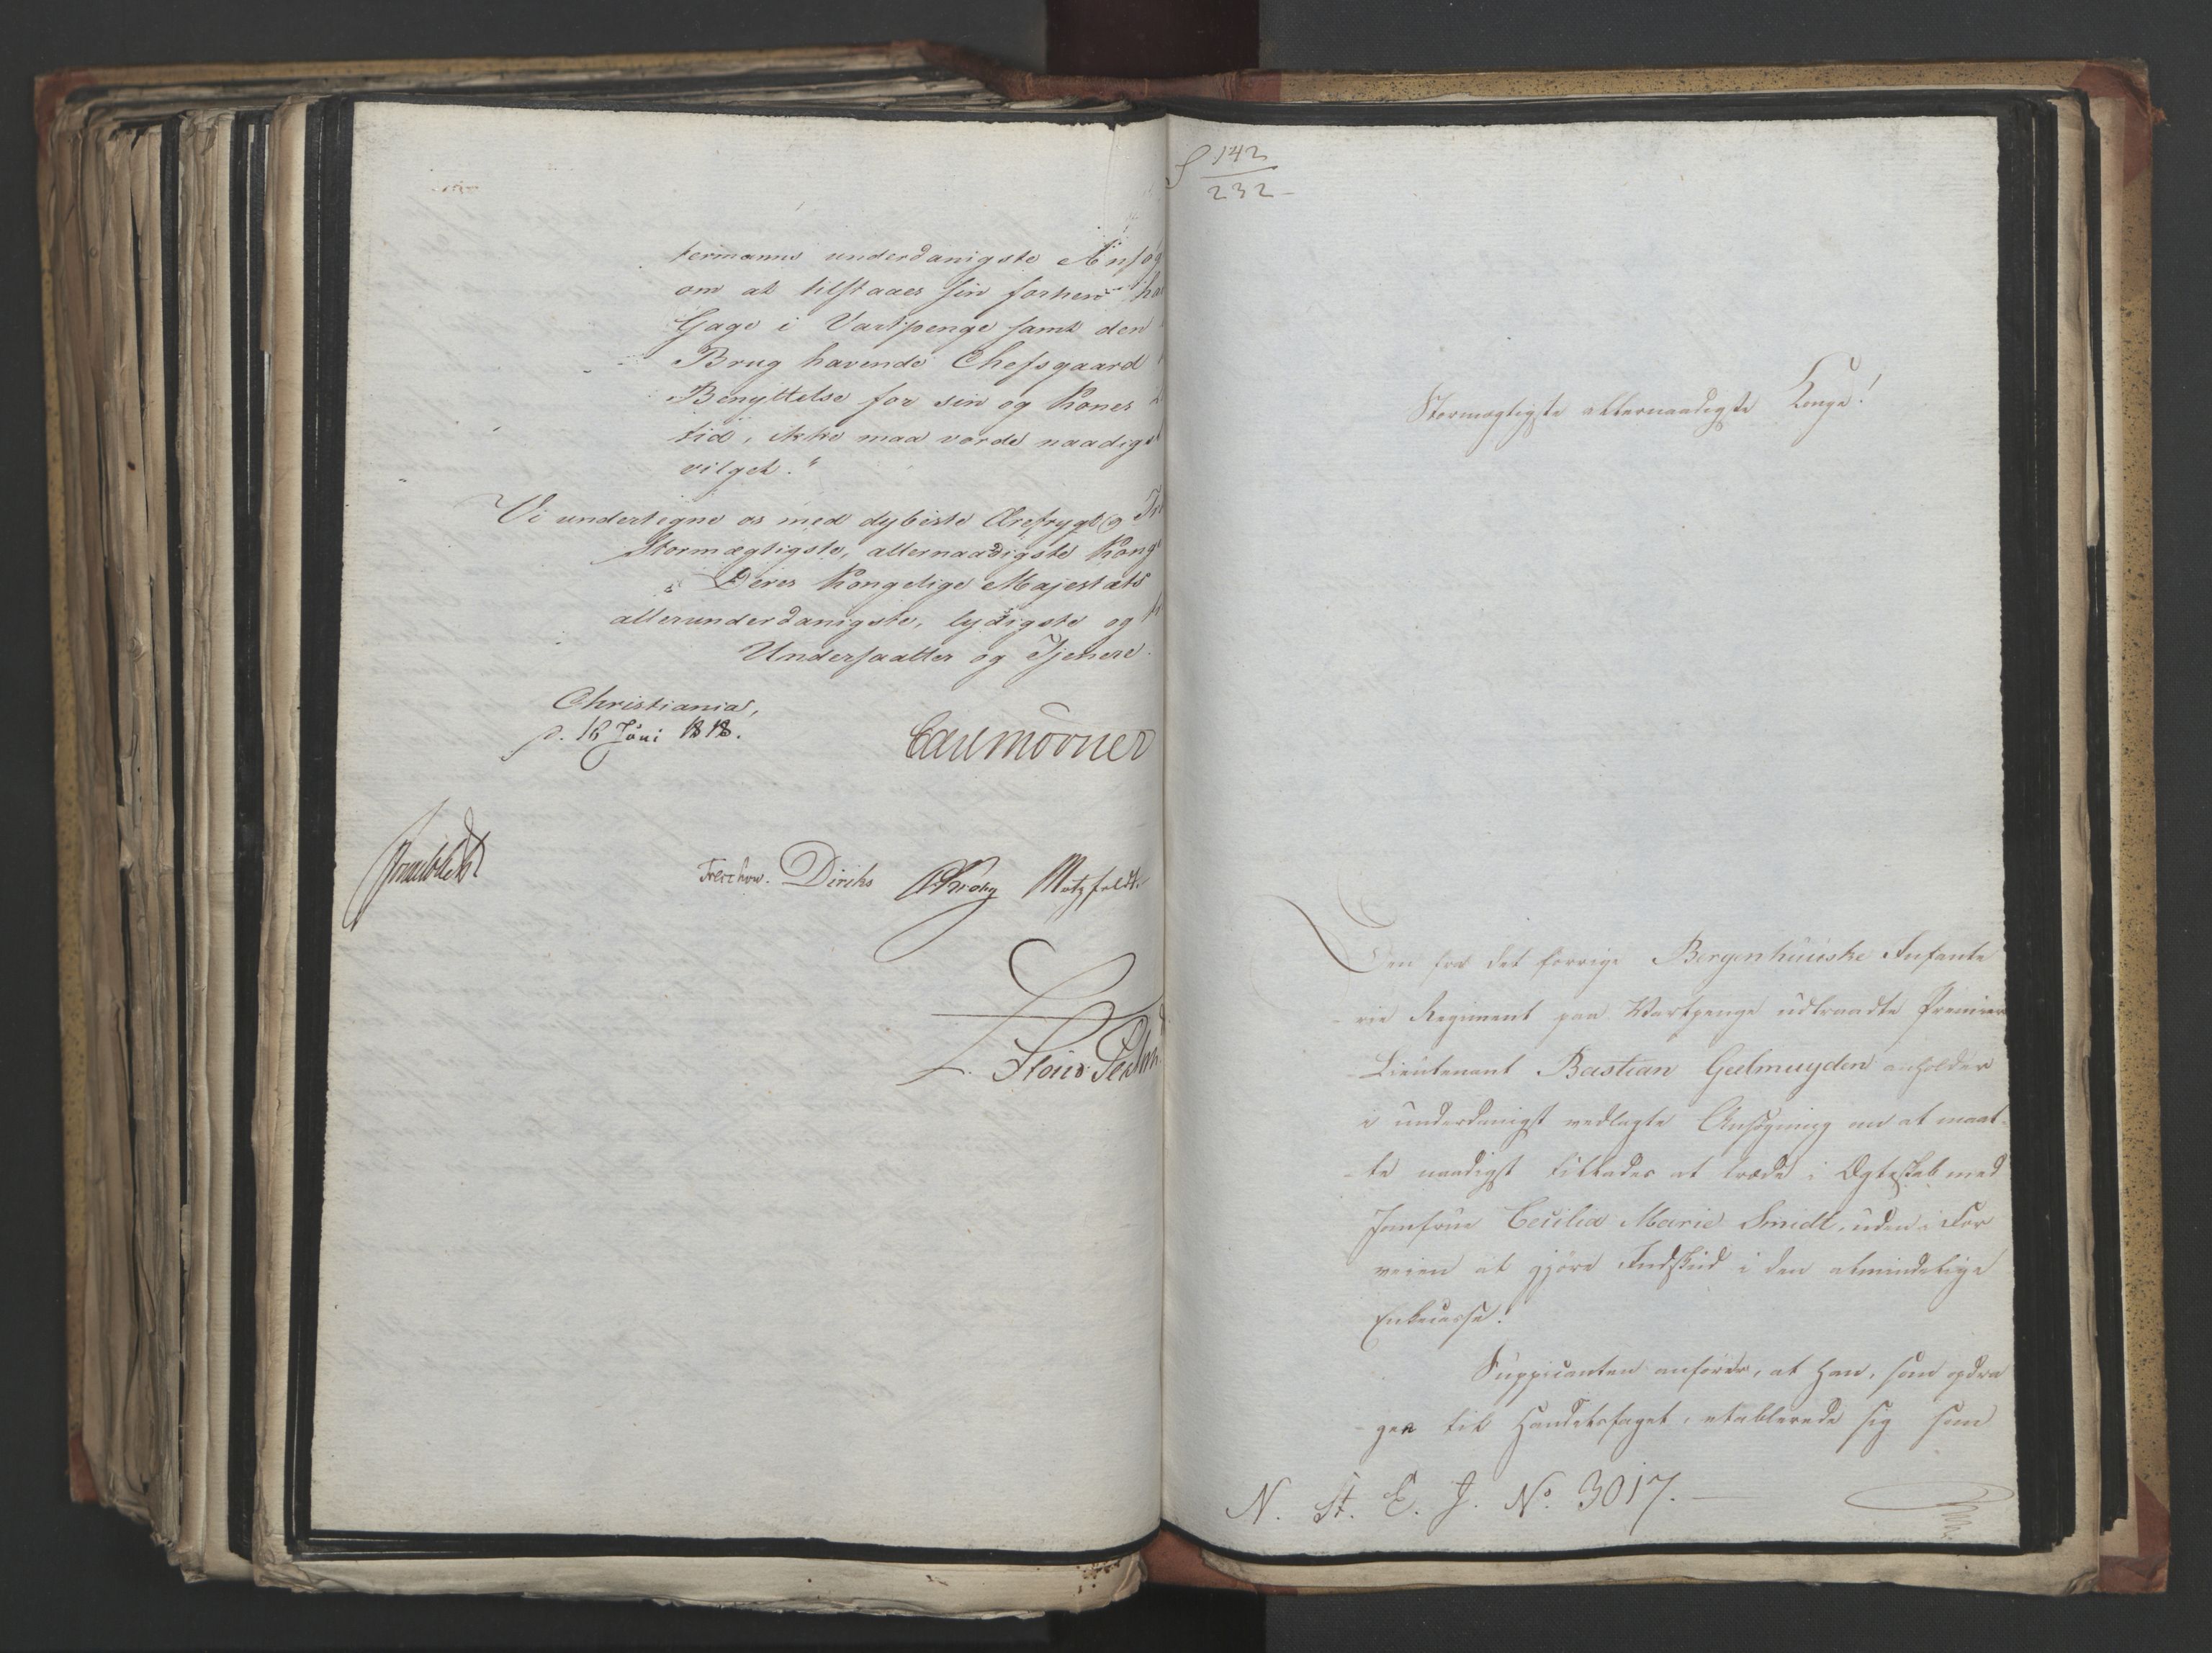 termanns underdanigste Ansøg
om at tilstaaes sin forhen ha
Gage i Vartpenge samt den
Brug havende Chefsgaard
Benyttelse for sin og Kones
tid, ikke maa vorde naadigst
vilget."
Vi undertegne os med dybeste Ærefrygt og Tro
Stormægtigste, allernaadigste Konge
Deres Kongelige Majestæts
allerunderdanigste, lydigste og
Undersaatter og Tjenere.
Christiania,
d. 16 Juni 1818.
Carl Mörner
Treschow. Diriks Krog Motzfeldt
S 142
232
Stormægtigste allernaadigste Konge!
Den fra det forrige Bergenhuusske Infante
rie Regiment paa Vartpenge udtraadte Premier
-Lieutenant Bastian Geelmuyden anholder
i underdanigst vedlagte Ansøgning om at maat-
-te naadigst tillades at træde i Ægteskab med
Jomfrue Cecilia Marie Smidt, uden i For
veien at gjøre Indskud i den almindelige
Enkecasse.
Suppicanten anfører, at han, som opdra
gen til Handelsfaget, etablerede sig som
N. St. E. J. No. 3017.